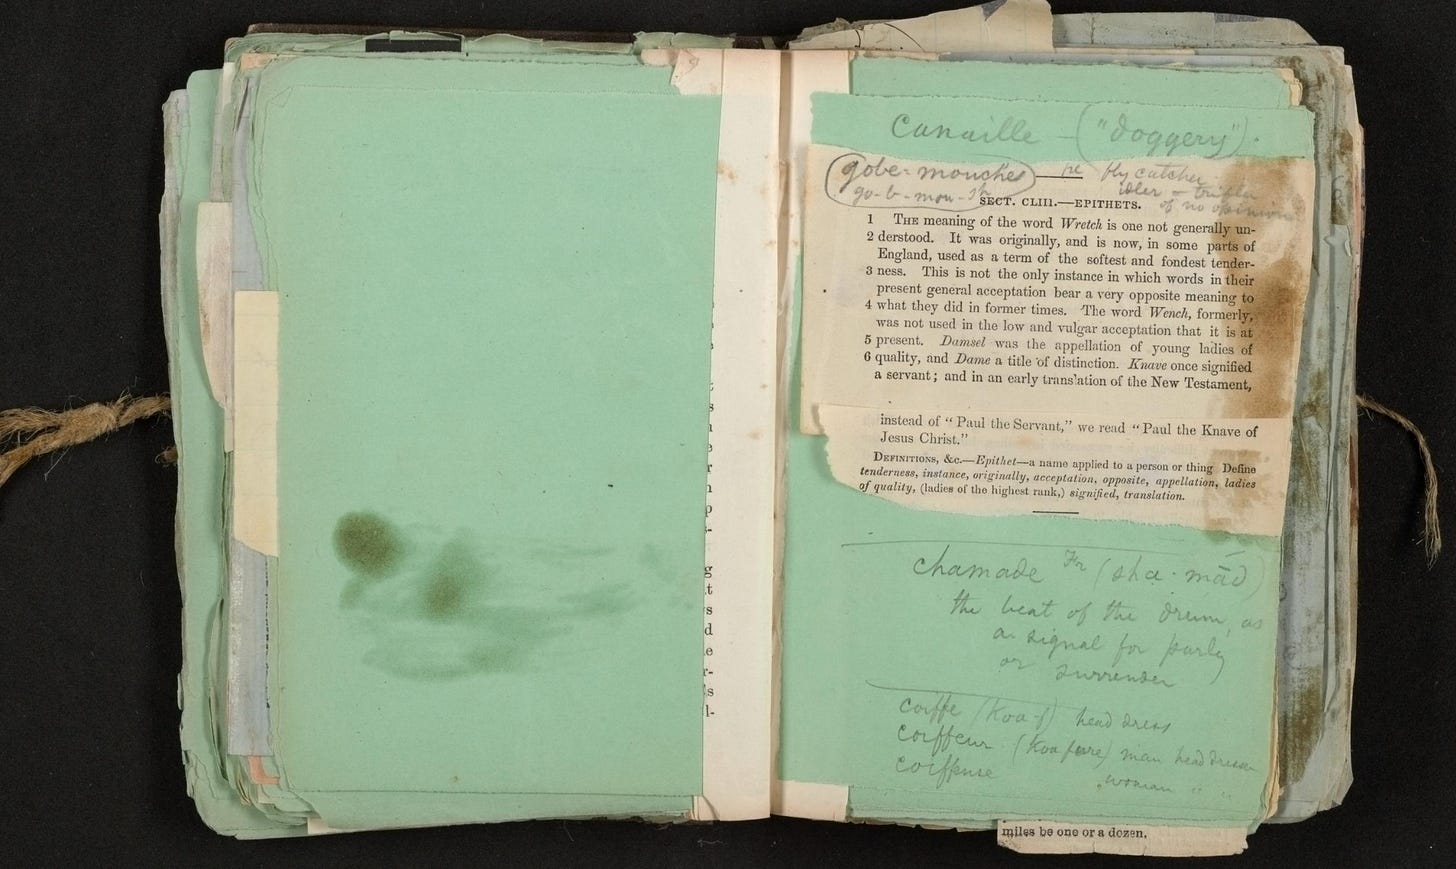 canaille — ("doggery").
gobe=mouches — fly catcher
go-b-mou-sh idler — trifler
of no opinion
SECT. CLIII.—EPITHETS.
1 THE meaning of the word Wretch is one not generally un-
2 derstood. It was originally, and is now, in some parts of
England, used as a term of the softest and fondest tender-
3 ness. This is not the only instance in which words in their
present general acceptation bear a very opposite meaning to
4 what they did in former times. The word Wench, formerly,
was not used in the low and vulgar acceptation that it is at
5 present. Damsel was the appellation of young ladies of
6 quality, and Dame a title of distinction. Knave once signified
a servant; and in an early translation of the New Testament,
instead of "Paul the Servant," we read "Paul the Knave of
Jesus Christ."
DEFINITIONS, &c.—Epithet—a name applied to a person or thing Define
tenderness, instance, originally, acceptation, opposite, appellation, ladies
of quality, (ladies of the highest rank,) signified, translation.
chamade Fr (sha-mād)
the beat of the drum, as
a signal for parly
or surrender
coiffe (Koa-f) head dress
coiffeur (Koa fure) man head dresser
coiffeuse woman " "
miles be one or a dozen.